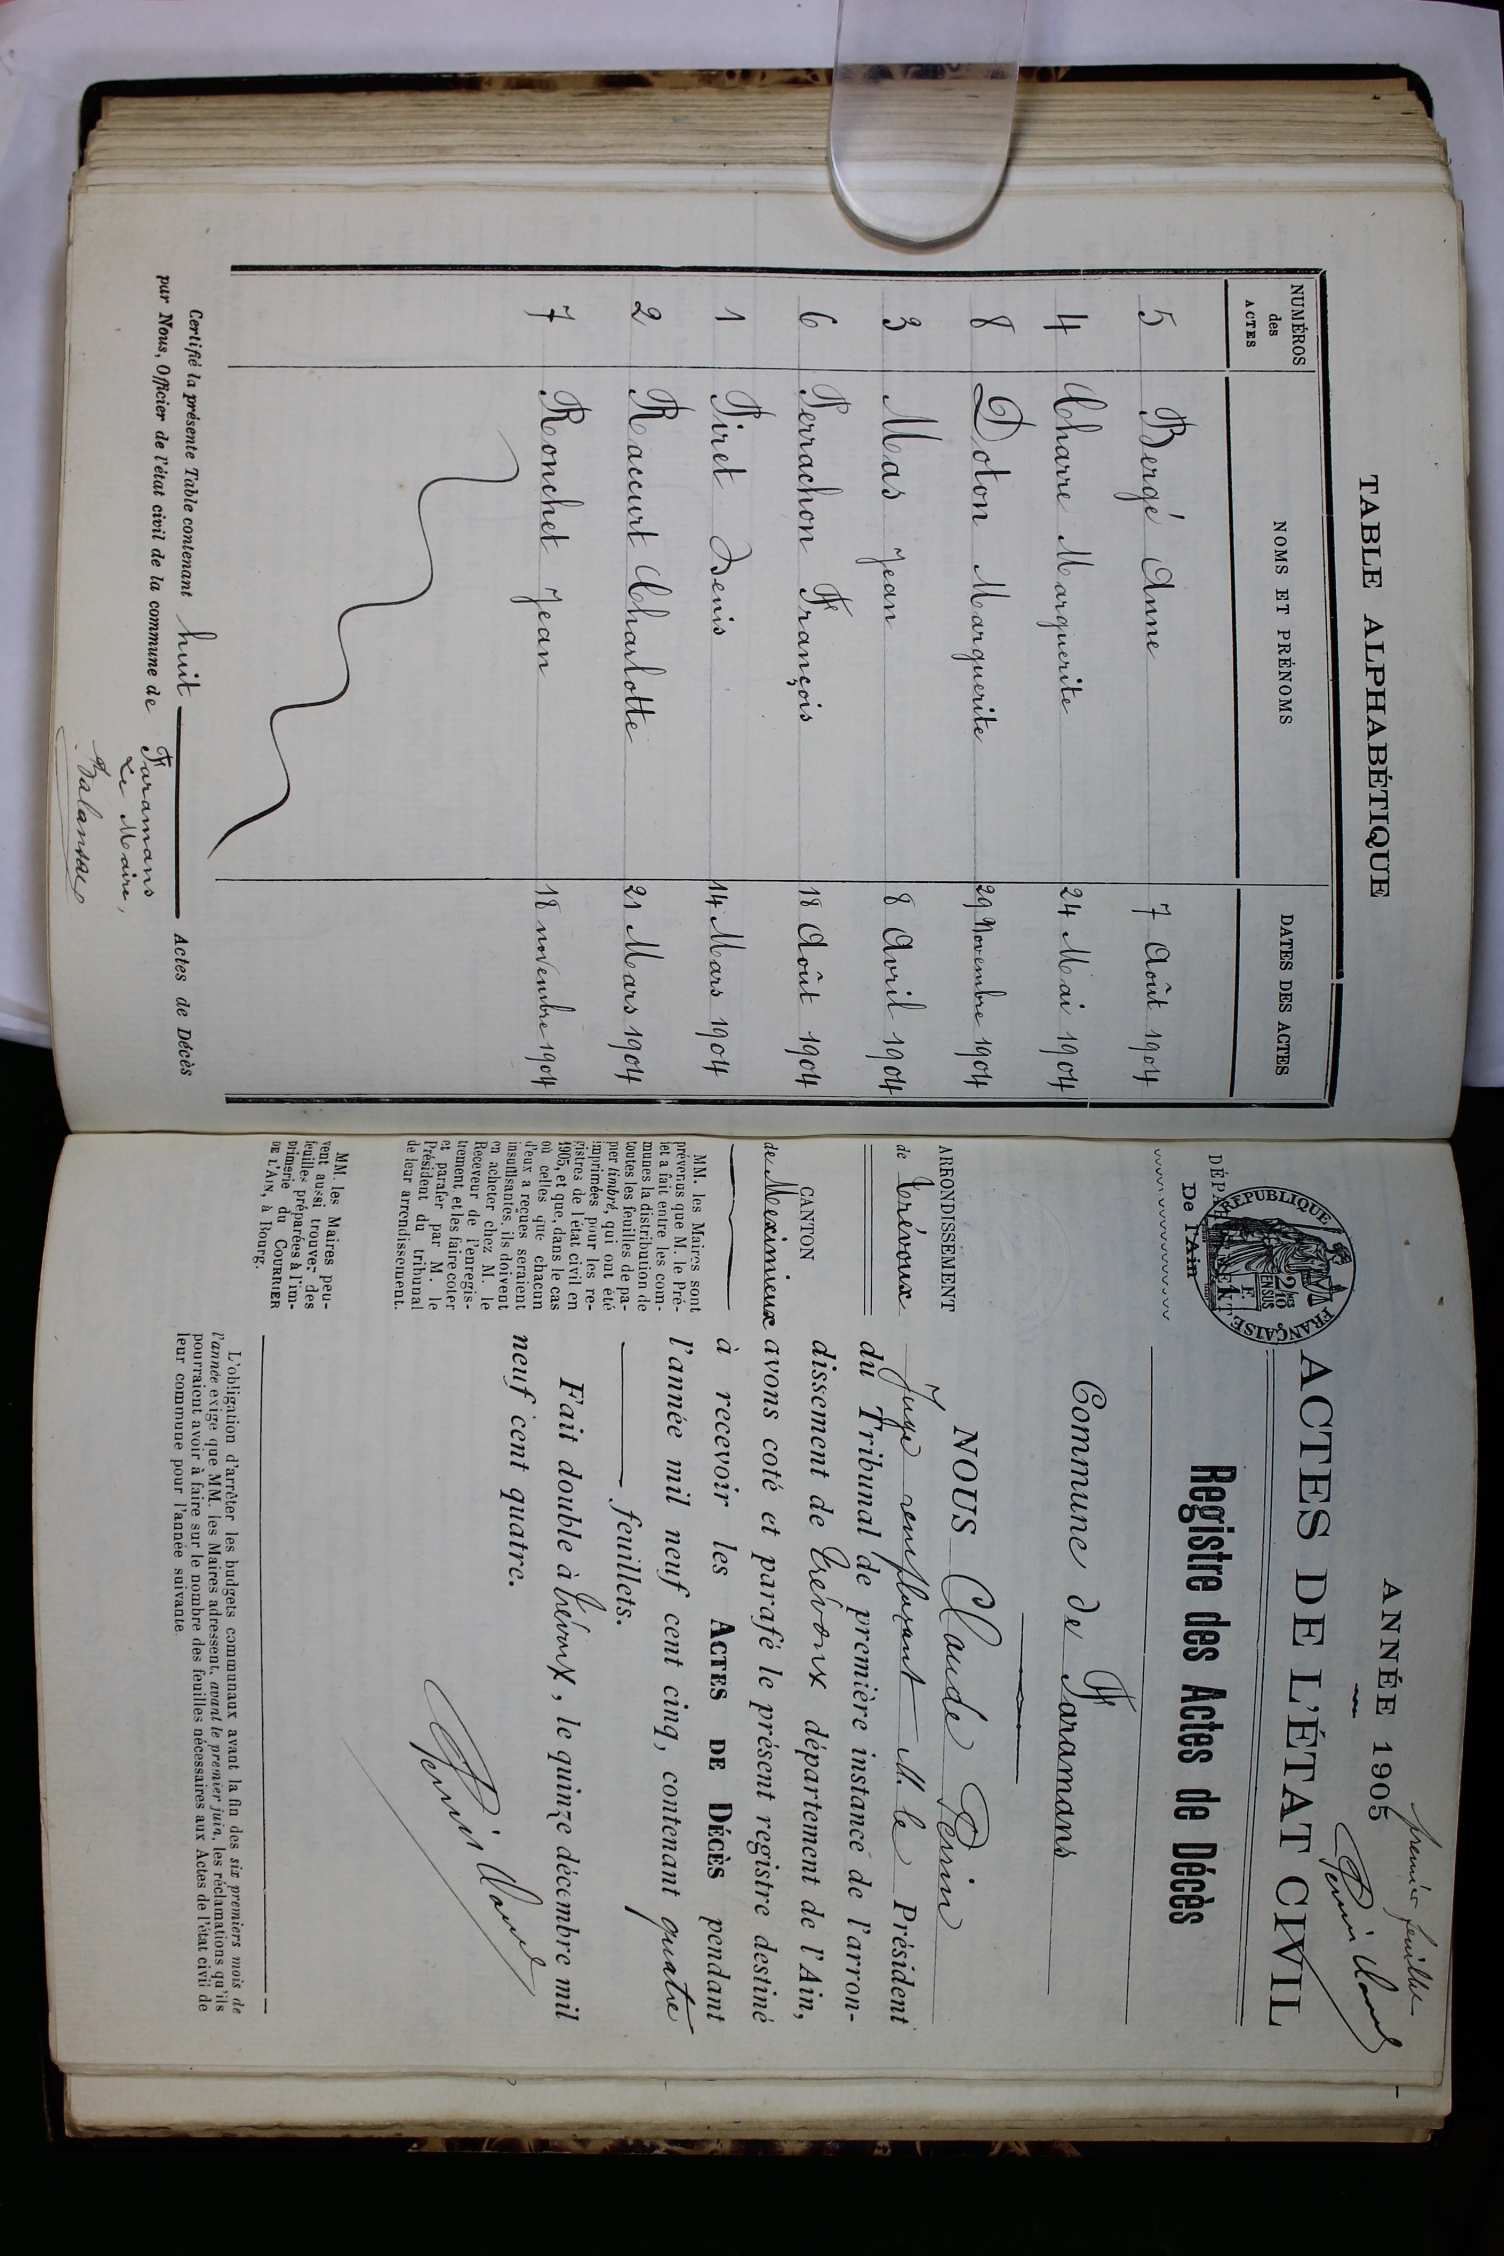 TABLE ALPHABÉTIQUE
NUMÉROS des ACTES
NOMS ET PRÉNOMS
DATES DES ACTES
5 Bergé Anne 7 Août 1904
4 Charre Marguerite 24 Mai 1904
8 Doton Marguerite 29 Novembre 1904
3 Mas Jean 8 Avril 1904
6 Perrachon François 18 Août 1904
1 Piret Denis 14 Mars 1904
2 Raccurt Charlotte 21 Mars 1904
7 Ronchet Jean 18 novembre 1904
Certifié la présente Table contenant huit Actes de Décès
par Nous, Officier de l'état civil de la commune de Faramans
Le Maire,
premier feuillet
Perrin Claude
ANNÉE 1905
ACTES DE L'ÉTAT CIVIL
RÉPUBLIQUE FRANÇAISE
2/10 EN SUS
DÉPARTEMENT
De l'Ain
Registre des Actes de Décès
Commune de Faramans
ARRONDISSEMENT
de Trévoux
CANTON
de Meximieux
MM. les Maires sont
prévenus que M. le Pré-
fet a fait entre les com-
munes la distribution de
toutes les feuilles de pa-
pier timbré, qui ont été
imprimées pour les re-
gistres de l'état civil en
1905, et que, dans le cas
où celles que chacun
d'eux a reçues seraient
insuffisantes, ils doivent
en acheter chez M. le
Receveur de l'enregis-
trement et les faire coter
et parafer par M. le
Président du tribunal
de leur arrondissement.
MM. les Maires peu-
vent aussi trouver des
feuilles préparées à l'im-
primerie du COURRIER
DE L'AIN, à Bourg.
NOUS Claude Perrin
Juge remplaçant M. le Président
du Tribunal de première instance de l'arron-
dissement de Trévoux département de l'Ain,
avons coté et parafé le présent registre destiné
à recevoir les ACTES DE DÉCÈS pendant
l'année mil neuf cent cinq, contenant quatre
feuillets.
Fait double à Trévoux, le quinze décembre mil
neuf cent quatre.
Perrin Claude
L'obligation d'arrêter les budgets communaux avant la fin des six premiers mois de
l'année exige que MM. les Maires adressent, avant le premier juin, les réclamations qu'ils
pourraient avoir à faire sur le nombre des feuilles nécessaires aux Actes de l'état civil de
leur commune pour l'année suivante.